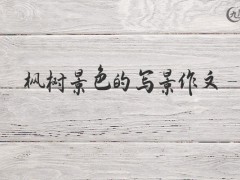 枫树景色的写景作文